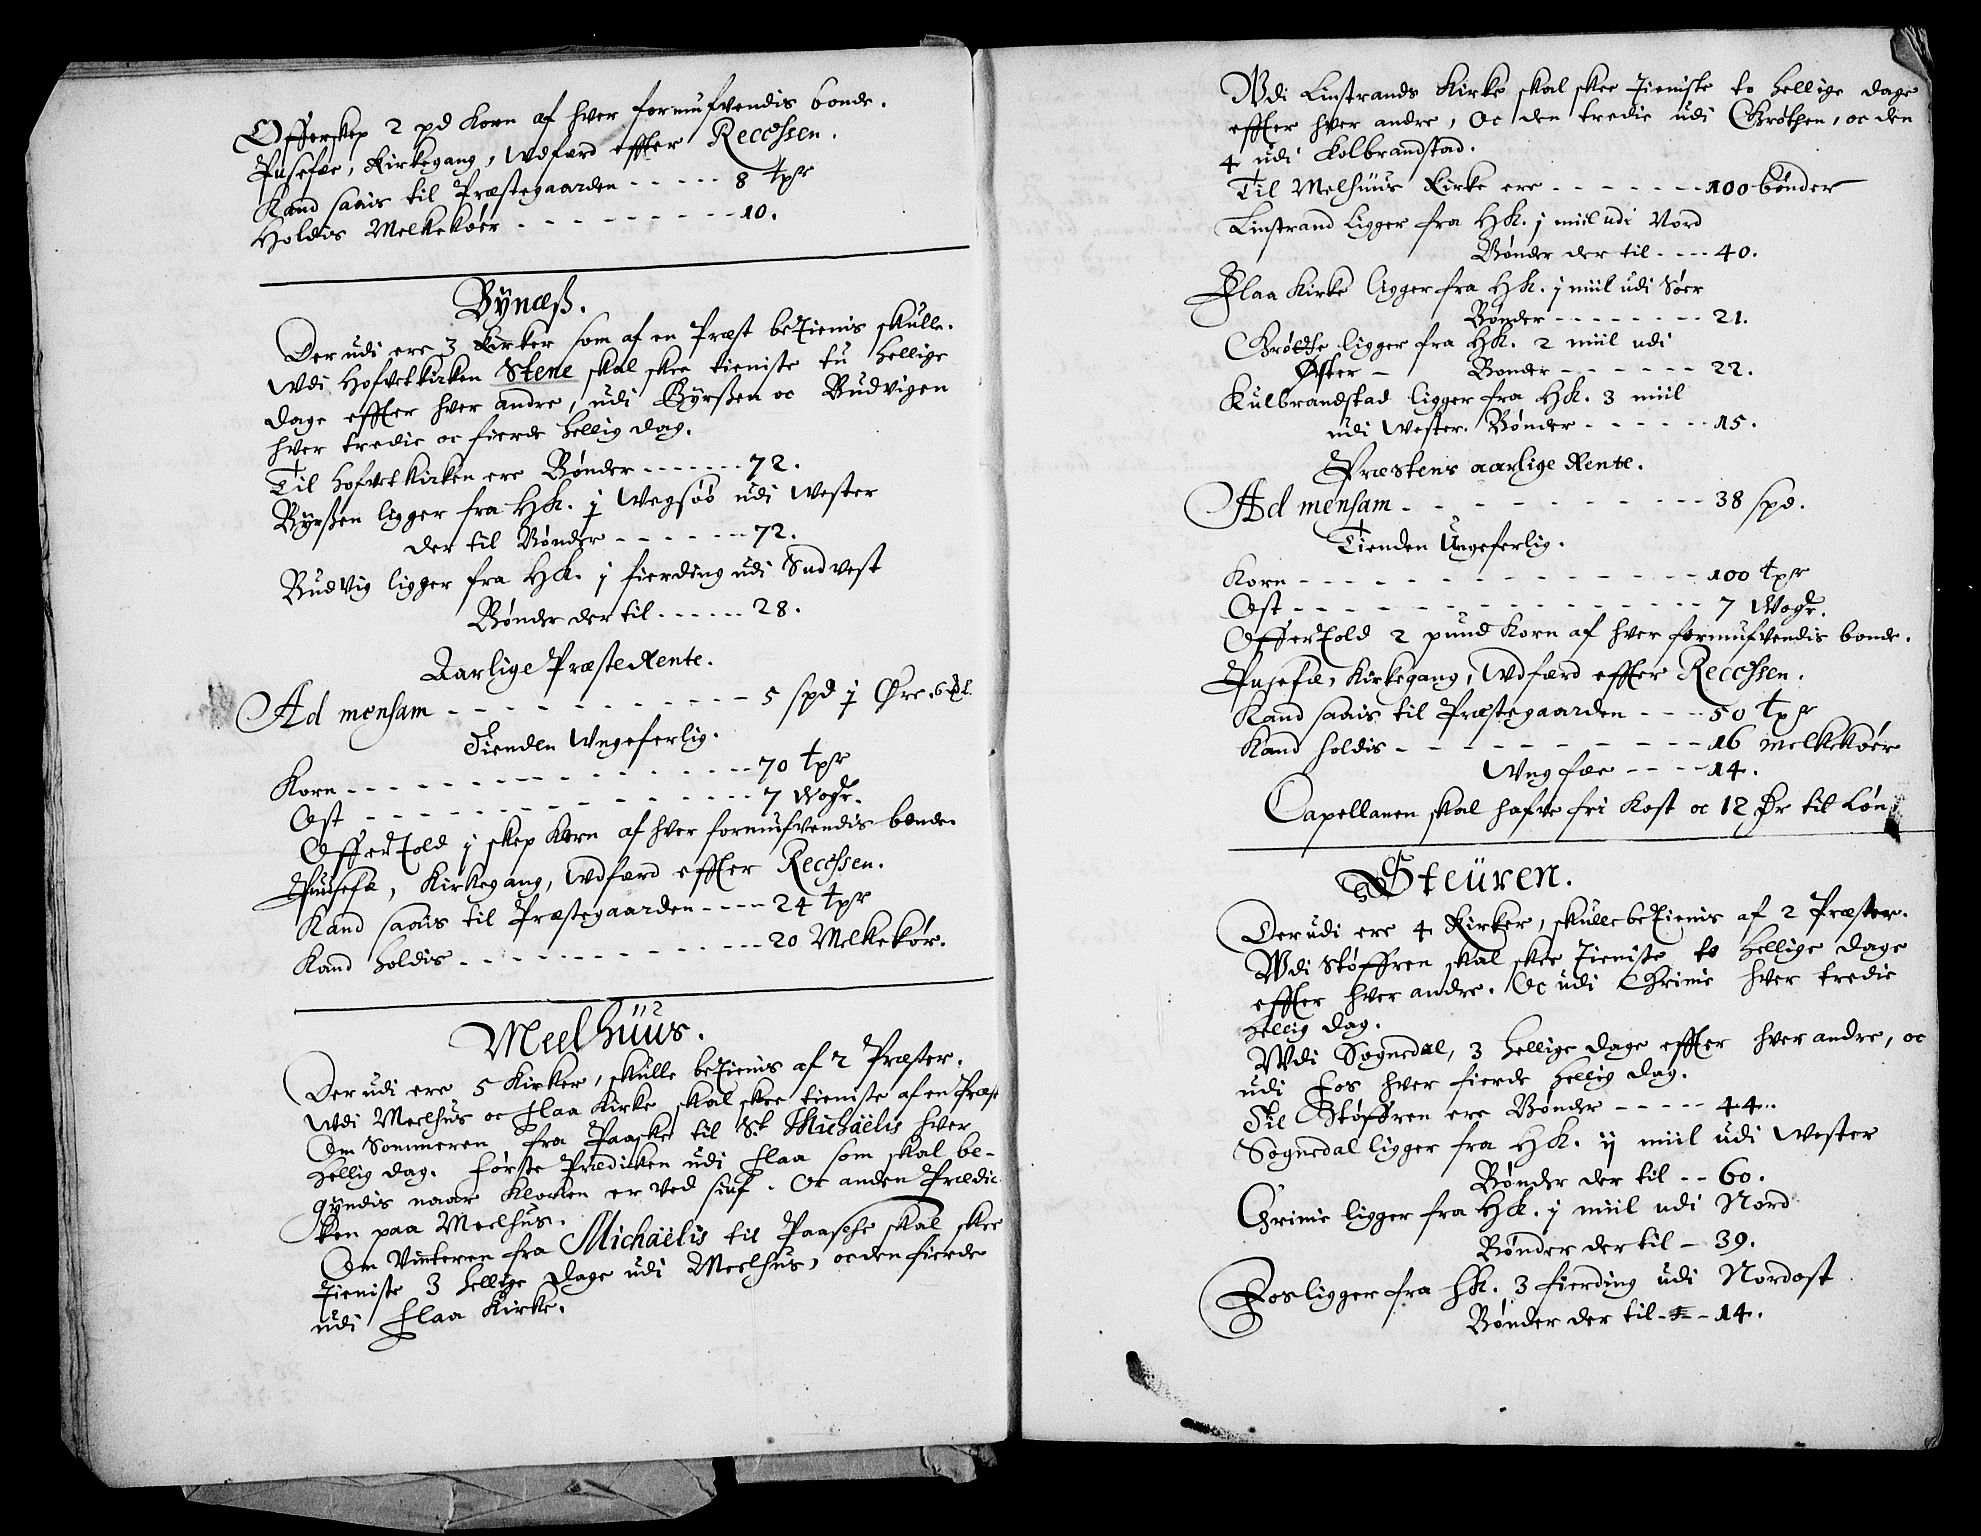 Offerskep 2 pd Korn af hver formufvendis bonde.
Jusefæ, Kirkegang, Wdfærd effter Recessen.
Kand saais til Præstegaarden - - - - - 8 tpr
Holdis Melkekøer - - - - - - - - - 10.
Bÿnæß.
Der udi ere 3 Kirker som af en Præst betienis skulle.
Wdi Hofvetkirken Stene skal skee tieniste tu hellige
dage effter hver andre, udi Bÿrßen oc Budvigen
hver tredie oc fierde hellig dag.
Til Hofvetkirken ere Bønder - - - - - - - 72.
Bÿrßen ligger fra HK. j Wegsøö udi Wester
der til Bønder - - - - - - - 72.
Budvig ligger fra HK. j fierding udi Sudvest
Bønder der til - - - - - - 28.
Aarlige Præste Rente.
Ad mensam - - - - - - - - - - - 5 spd j Øre. 6
Tienden Wngeferlig.
Korn - - - - - - - - - - - - - - - 70 tpr
Ost - - - - - - - - - - - - - - - 7 Wogr.
Offertold j skep Korn af hver formufvendis bonde
Juusefæ, Kirkegang, Wdfærd effter Recessen.
Kand saais til Præstegaarden - - - - 24 tpr
Kand holdis - - - - - - - - - - - 20 Melkekør.
Meelhüüs.
Der udi ere 5 Kirker, skulle betienis af 2 Præster.
Wdi Meelhus oc Flaa Kirke skal skee tieniste af en Præst
Om Sommeren fra Paaske til St. Michaëlis hver
hellig dag. Første Prædicken udi Flaa som skal be-
gÿndis naar Klocken er ved siuf. Oc anden Prædic-
ken paa Meelhus.
Om Vinteren fra Michaëlis til Paasche skal skee
Tieniste 3 hellige Dage udi Meelhus, oc den fierde
udi Flaa Kirke.
Wdi Linstrands Kirke skal skee Tieniste to hellige dage
effter hver andre, Oc den tredie udi Grøthen, oc den
4 udi Kolbrandstad.
Til Melhüüs Kirke ere - - - - - - - 100 bønder
Linstrand ligger fra HK. j miil udi Nord
Bønder der til - - - - 40.
Flaa Kirke ligger fra HK. j miil udi Søer
Bønder - - - - - - - - 21.
Grøthe ligger fra HK. 2 miil udi
Øster - Bonder - - - - - - - 22.
Kulbrandstad ligger fra HK. 3 miil
udi Wester. Bønder - - - - - - - 15.
Præstens aarlige Rente.
Ad mensam - - - - - - - - - 38 spd.
Tienden Ungeferlig.
Korn - - - - - - - - - - - - - - - 100 tpr
Ost - - - - - - - - - - - - - - - 7 Wogr.
Offertold 2 pund Korn af hver formufvendis bonde.
Jusefæ, Kirkegang, Wdfærd effter Recessen.
Kand saais til Præstegaarden - - - - 50 tpr
Kand holdis - - - - - - - - - - - 16 melkekøer
Wngfæe - - - - 14.
Capellanen skal hafve fri Kost oc 12 Ør til Løn
Steüren.
Der udi ere 4 Kirker, skulle betienis af 2 Præster.
Wdi Støffren skal skee Tieniste to hellige dage
effter hver andre. Oc udi Grinie hver tredie
hellig dag.
Wdi Sognedal, 3 hellige dage effter hver andre, oc
udi Fos hver fierde hellig dag.
Til Støffren ere Bønder - - - - - 44.
Sognedal ligger fra HK. ij miil udi Wester
Bønder der til - - 60.
Grinie ligger fra HK. j miil udi Nord
Bønder der til - 39.
Fos ligger fra HK. 3 fierding udi Nordost
Bønder der til - - - 14.